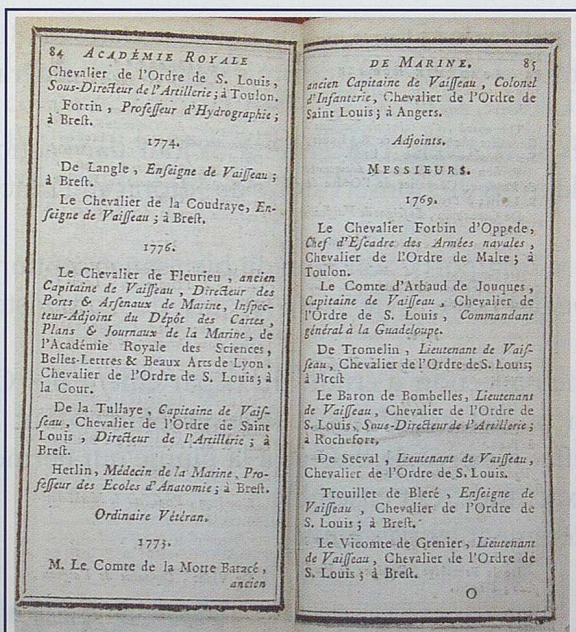 84 ACADÉMIE ROYALE
Chevalier de l'Ordre de S. Louis,
Sous-Directeur de l'Artillerie ; à Toulon.
Fortin , Professeur d'Hydrographie ;
à Brest.
1774.
De Langle , Enseigne de Vaisseau ;
à Brest.
Le Chevalier de la Coudraye, En-
seigne de Vaisseau ; à Brest.
1776.
Le Chevalier de Fleurieu , ancien
Capitaine de Vaisseau , Directeur des
Ports & Arsenaux de Marine, Inspec-
teur-Adjoint du Dépôt des Cartes ,
Plans & Journaux de la Marine , de
l'Académie Royale des Sciences,
Belles-Lettres & Beaux Arts de Lyon ,
Chevalier de l'Ordre de S. Louis ; à
la Cour.
De la Tullaye , Capitaine de Vais-
seau , Chevalier de l'Ordre de Saint
Louis , Directeur de l'Artillerie ; à
Brest.
Herlin , Médecin de la Marine , Pro-
fesseur des Ecoles d'Anatomie ; à Brest.
Ordinaire Vétéran.
1773.
M. Le Comte de la Motte Baracé ,
ancien
DE MARINE. 85
ancien Capitaine de Vaisseau , Colonel
d'Infanterie , Chevalier de l'Ordre de
Saint Louis ; à Angers.
Adjoints.
MESSIEURS.
1769.
Le Chevalier Forbin d'Oppede,
Chef d'Escadre des Armées navales ,
Chevalier de l'Ordre de Malte ; à
Toulon.
Le Comte d'Arbaud de Jouques ,
Capitaine de Vaisseau , Chevalier de
l'Ordre de S. Louis , Commandant
général à la Guadeloupe.
De Tromelin , Lieutenant de Vais-
seau , Chevalier de l'Ordre de S. Louis;
à Brest
Le Baron de Bombelles , Lieutenant
de Vaisseau , Chevalier de l'Ordre de
S. Louis , Sous-Directeur de l'Artillerie ;
à Rochefort.
De Secval , Lieutenant de Vaisseau ,
Chevalier de l'Ordre de S. Louis.
Trouillet de Bleré , Enseigne de
Vaisseau , Chevalier de l'Ordre de
S. Louis ; à Brest.
Le Vicomte de Grenier , Lieutenant
de Vaisseau , Chevalier de l'Ordre de
S. Louis ; à Brest.
O